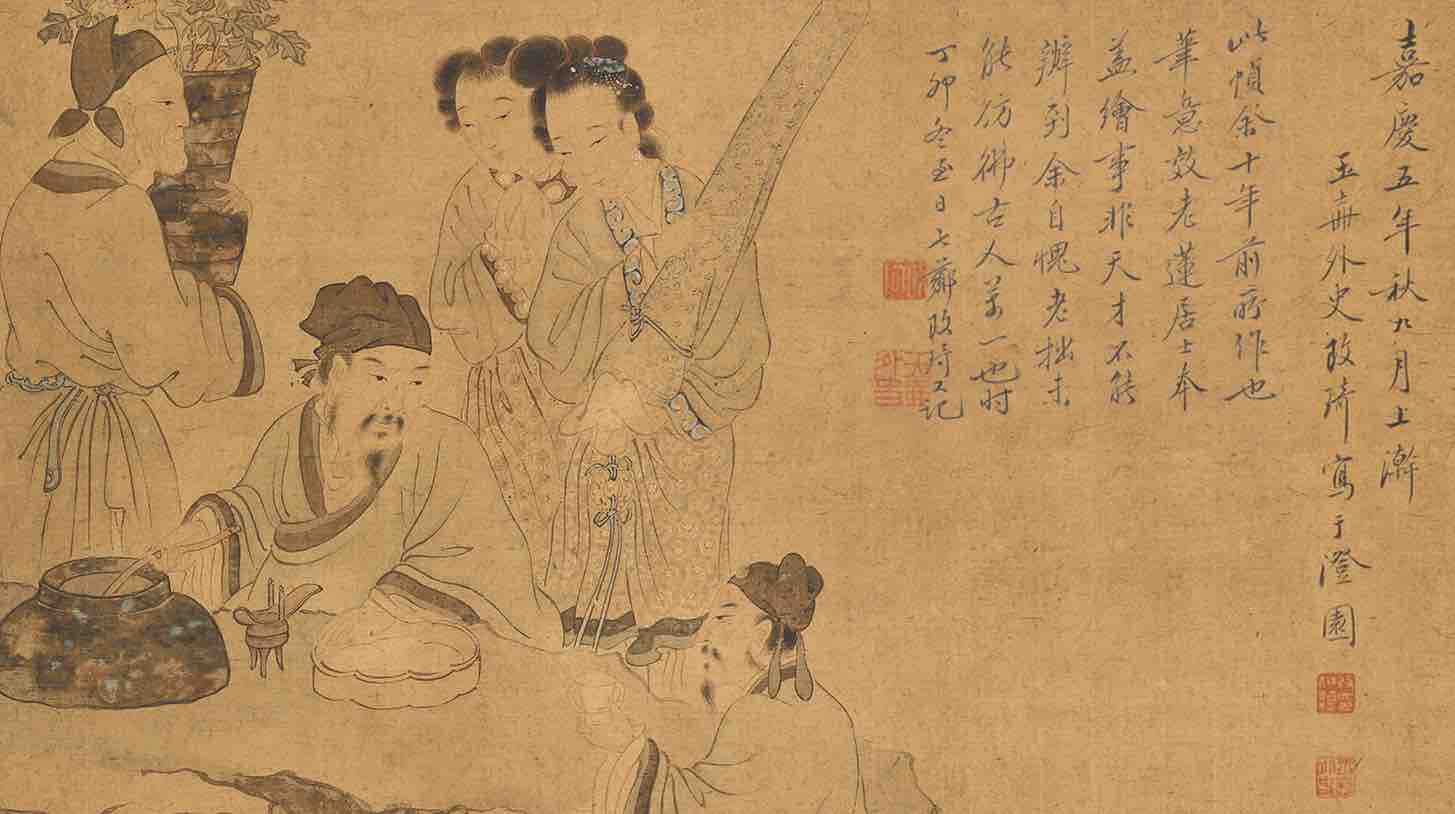 嘉慶五年秋九月上澣
玉壺外史改琦寫于澄園
此幀余十年前所作也
筆意效老蓮居士本
蓋繪事非天才不能
辦到余自愧老拙未
能仿彿古人萬一也时
丁卯冬至日七薌改琦又記